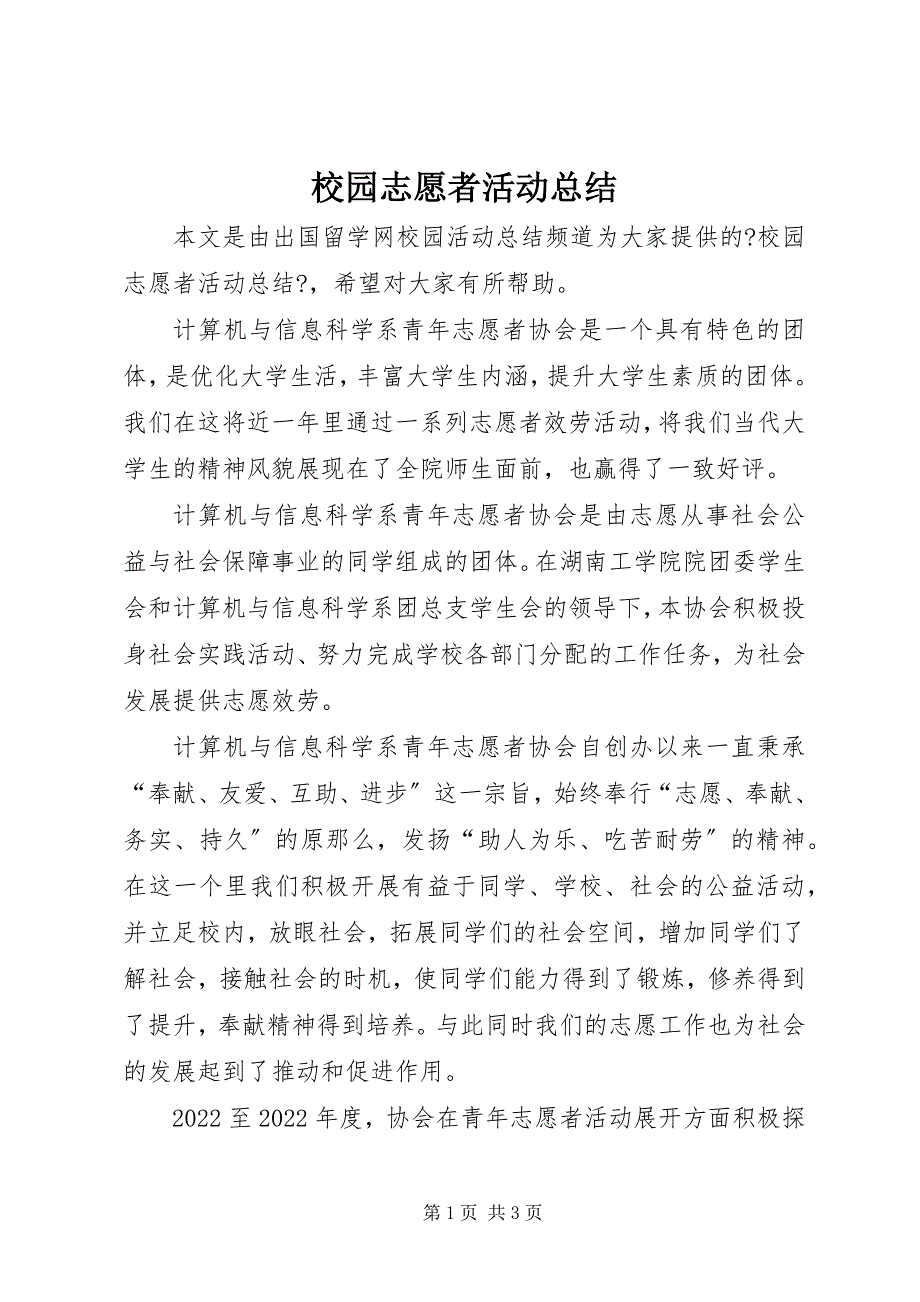 校园志愿者活动总结
本文是由出国留学网校园活动总结频道为大家提供的?校园
志愿者活动总结?，希望对大家有所帮助。
计算机与信息科学系青年志愿者协会是一个具有特色的团
体，是优化大学生活，丰富大学生内涵，提升大学生素质的团体。
我们在这将近一年里通过一系列志愿者效劳活动，将我们当代大
学生的精神风貌展现在了全院师生面前，也赢得了一致好评。
计算机与信息科学系青年志愿者协会是由志愿从事社会公
益与社会保障事业的同学组成的团体。在湖南工学院院团委学生
会和计算机与信息科学系团总支学生会的领导下，本协会积极投
身社会实践活动、努力完成学校各部门分配的工作任务，为社会
发展提供志愿效劳。
计算机与信息科学系青年志愿者协会自创办以来一直秉承
“奉献、友爱、互助、进步〞这一宗旨，始终奉行“志愿、奉献、
务实、持久〞的原那么，发扬“助人为乐、吃苦耐劳〞的精神。
在这一个里我们积极开展有益于同学、学校、社会的公益活动，
并立足校内，放眼社会，拓展同学们的社会空间，增加同学们了
解社会，接触社会的时机，使同学们能力得到了锻炼，修养得到
了提升，奉献精神得到培养。与此同时我们的志愿工作也为社会
的发展起到了推动和促进作用。
2022 至 2022 年度，协会在青年志愿者活动展开方面积极探
第 1 页 共 3 页